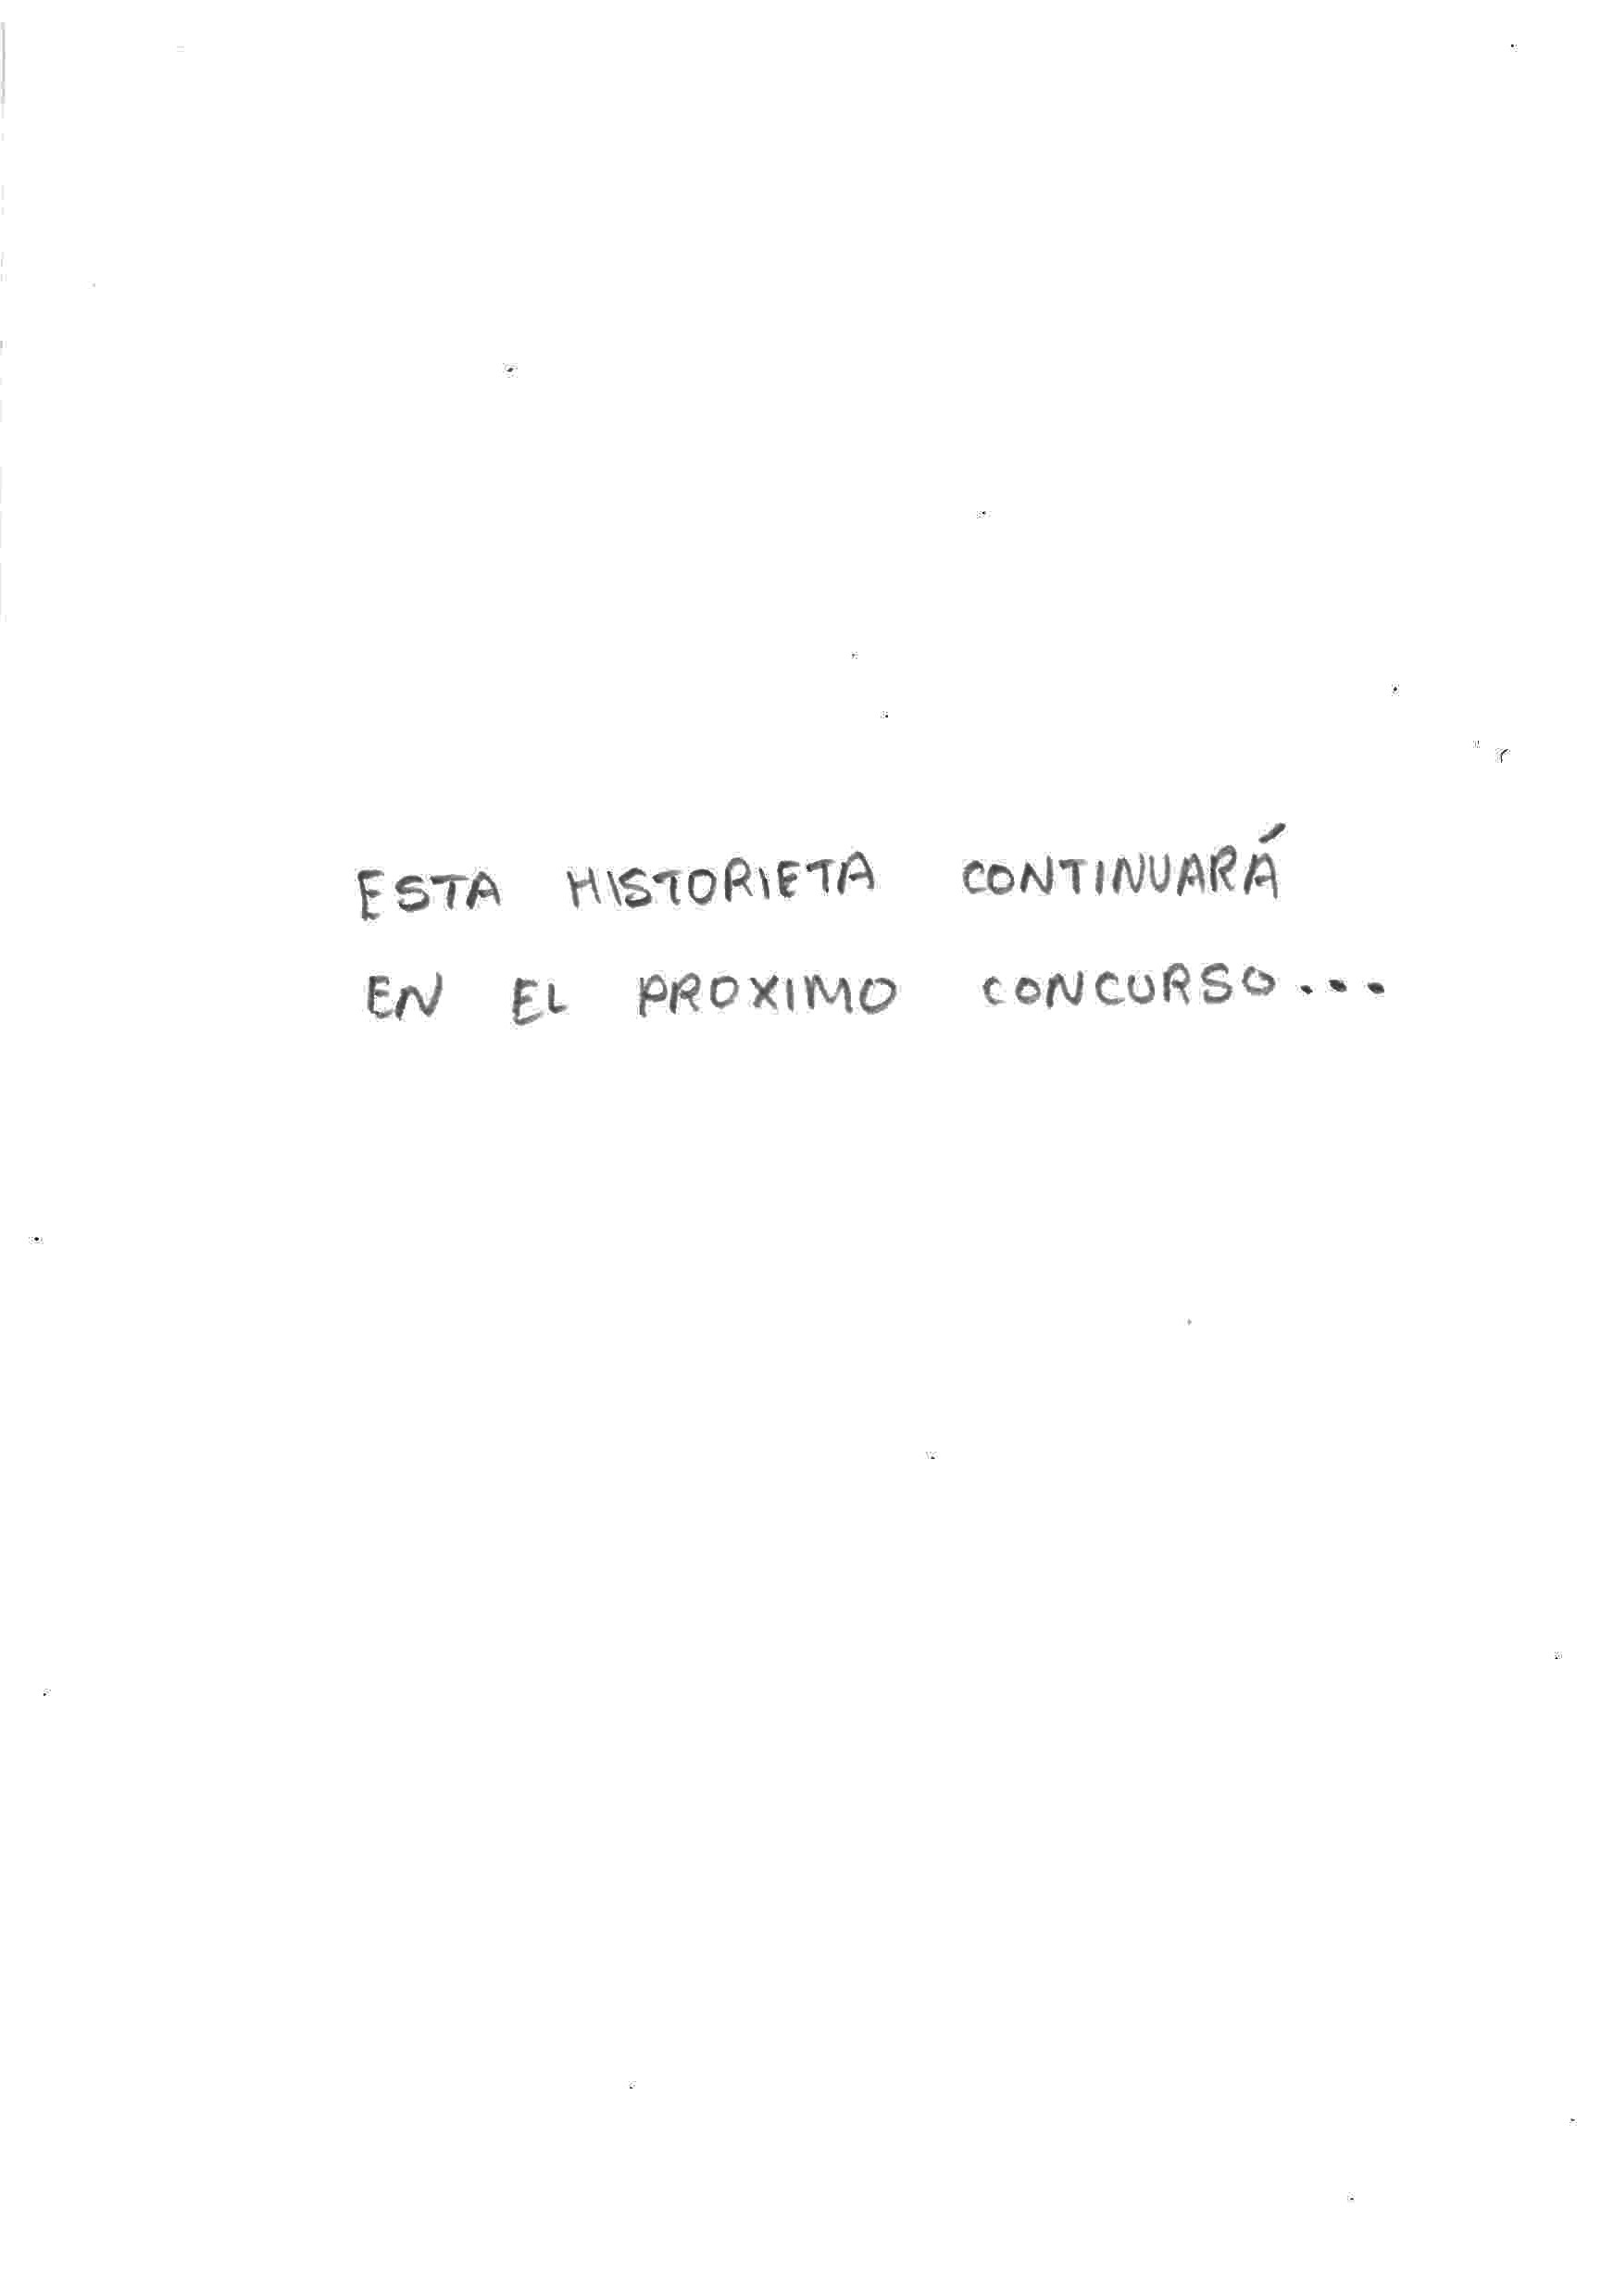 ESTA HISTORIETA CONTINUARÁ
EN EL PROXIMO CONCURSO...